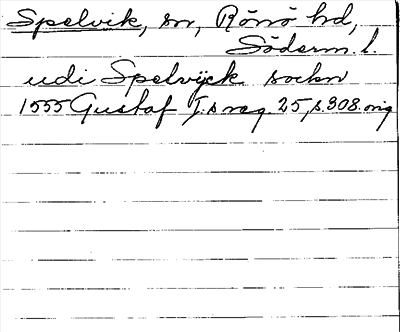 Spelvik, sn, Rönö hd,
Söderm. l.
udi Spelvijck sockn
1555 Gustaf I:s reg. 25, s. 308. orig